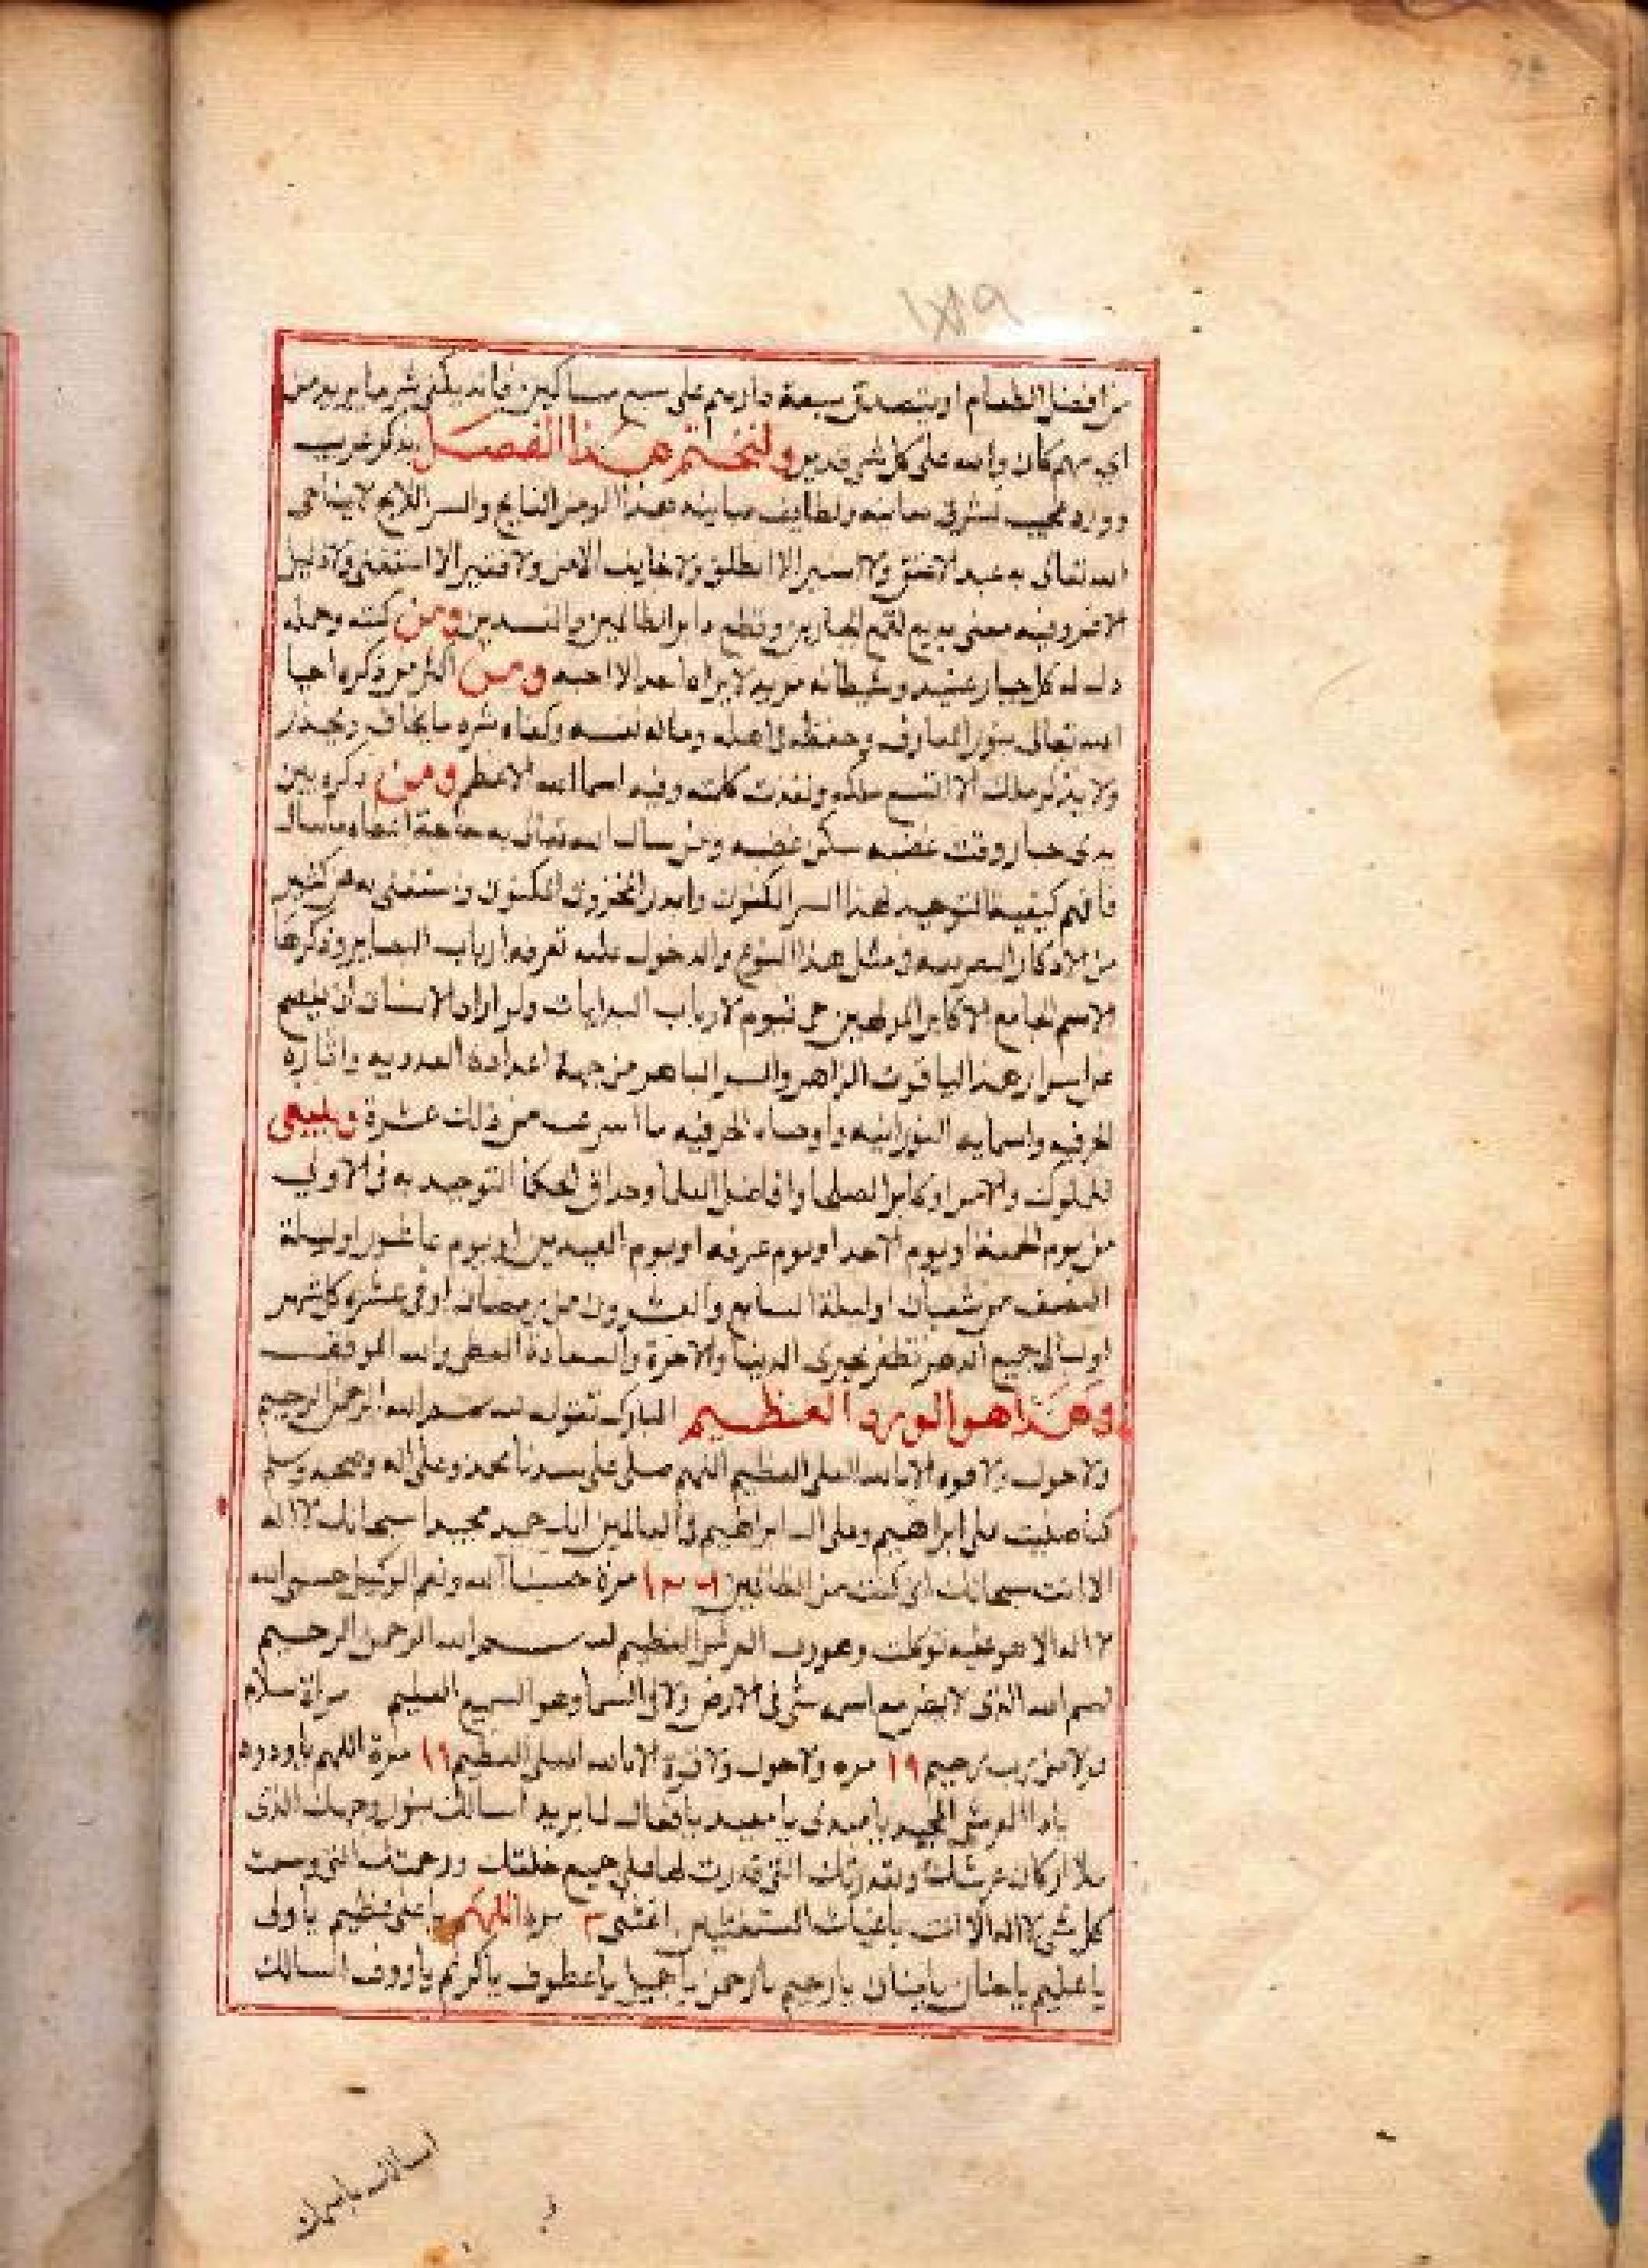 ١٨٩
من افضل الطعام او يتصدق بسبعة دراهم على سبع مساكين فانه يكفى شر ما يريد من
اى مهم كان والله على كل شى قدير ولنختم هذا الفصل بذكر غريب
وورد عجيب لشرف معانيه ولطايف مبانيه هذا الرمز الناجح والسر اللايح لا يناجى
الله تعالى به عبد الا عتق ولا اسير الا انطلق ولا خايف الا امن ولا فقير الا استغنى ولا ذليل
الا عز وفيه معنى بديع لقمع الجبارين وقطع دابر الظالمين والمفسدين ومن كتبه وحمله
ذل له كل جبار عنيد وشيطان مريد لا يراه احد الا احبه ومن اكثر من ذكره احيا
الله تعالى بنور المعارف وحفظه فى اهله وماله ونفسه وكفاه شر ما يخاف ويحذر
ولا يذكر ملك الا اتسع ملكه ونفذت كلمته وفيه اسم الله الاعظم ومن ذكره بين
يدى جبار وقت غضبه سكن غضبه ومن سال الله تعالى به حاجة اعطاه ما سال
فافهم كيفية التوجيه لهذا السر المكنون والدر المخزون المكنون وتستغنى به عن كثير
من الاذكار فى مثل هذا النوع والدخول عليه تعرفه ارباب البصاير وذكرها
الاسم الجامع الاكابر المولهين حى قيوم لارباب البدايات ولو اراد الانسان ان يفصح
عن اسرار هذا الياقوت الزاهر والسر الباهر من جهة اعداده العدديه واثاره
الحرفيه واسمايه النورانيه واوصافه الحرفيه ما استوعب من ذلك عشرة وينبغى
للملوك والامرا وكابر الصلحا وافاضل العلما وحذاق الحكما التوجيد به فى الاولى
من يوم الجمعة او يوم الاحد او يوم عرفه او يوم العيدين او يوم عاشورا وليلة
النصف من شعبان او ليلة السابع والعشرون من رمضان او فى عشر كل شهر
او ليالى جميع الدهر تظفر بخيرى الدنيا والاخرة والسعادة العظمى والله الموفق
وهذا هو الورد العظيم المبارك تقول بسم الله الرحمن الرحيم
ولا حول ولا قوه الا بالله العلى العظيم اللهم صلى على سيدنا محمد وعلى اله وصحبه وسلم
كما صليت على ابراهيم وعلى ال ابراهيم فى العالمين انك حميد مجيد سبحانك لا اله
الا انت سبحانك انى كنت من الظالمين مرة حسبنا الله ونعم الوكيل حسبى الله
لا اله الا هو عليه توكلت وهو رب العرش العظيم بسم الله الرحمن الرحيم
بسم الله الذى لا يضر مع اسمه شى فى الارض ولا فى السما وهو السميع العليم مراة سلام
قولا من رب رحيم ١٩ مره ولا حول ولا قوة الا بالله العلى العظيم ١٩ مرة اللهم يا ودود
يا ذا العرش المجيد يا مبدى يا معيد يا فعال لما يريد اسالك بنور وجهك الذى
ملا اركان عرشك وبقدرتك التى قدرت بها على جميع خلقك ورحمتك التى وسعت
كل شى لا اله الا انت يا غياث المستغيثين اغثنى ٣ مره اللهم يا على يا عظيم يا ولى
يا عليم يا حنان يا منان يا رحيم يا رحمن يا جميل يا عطوف يا كريم يا رووف اسالك
اسالك باسمك